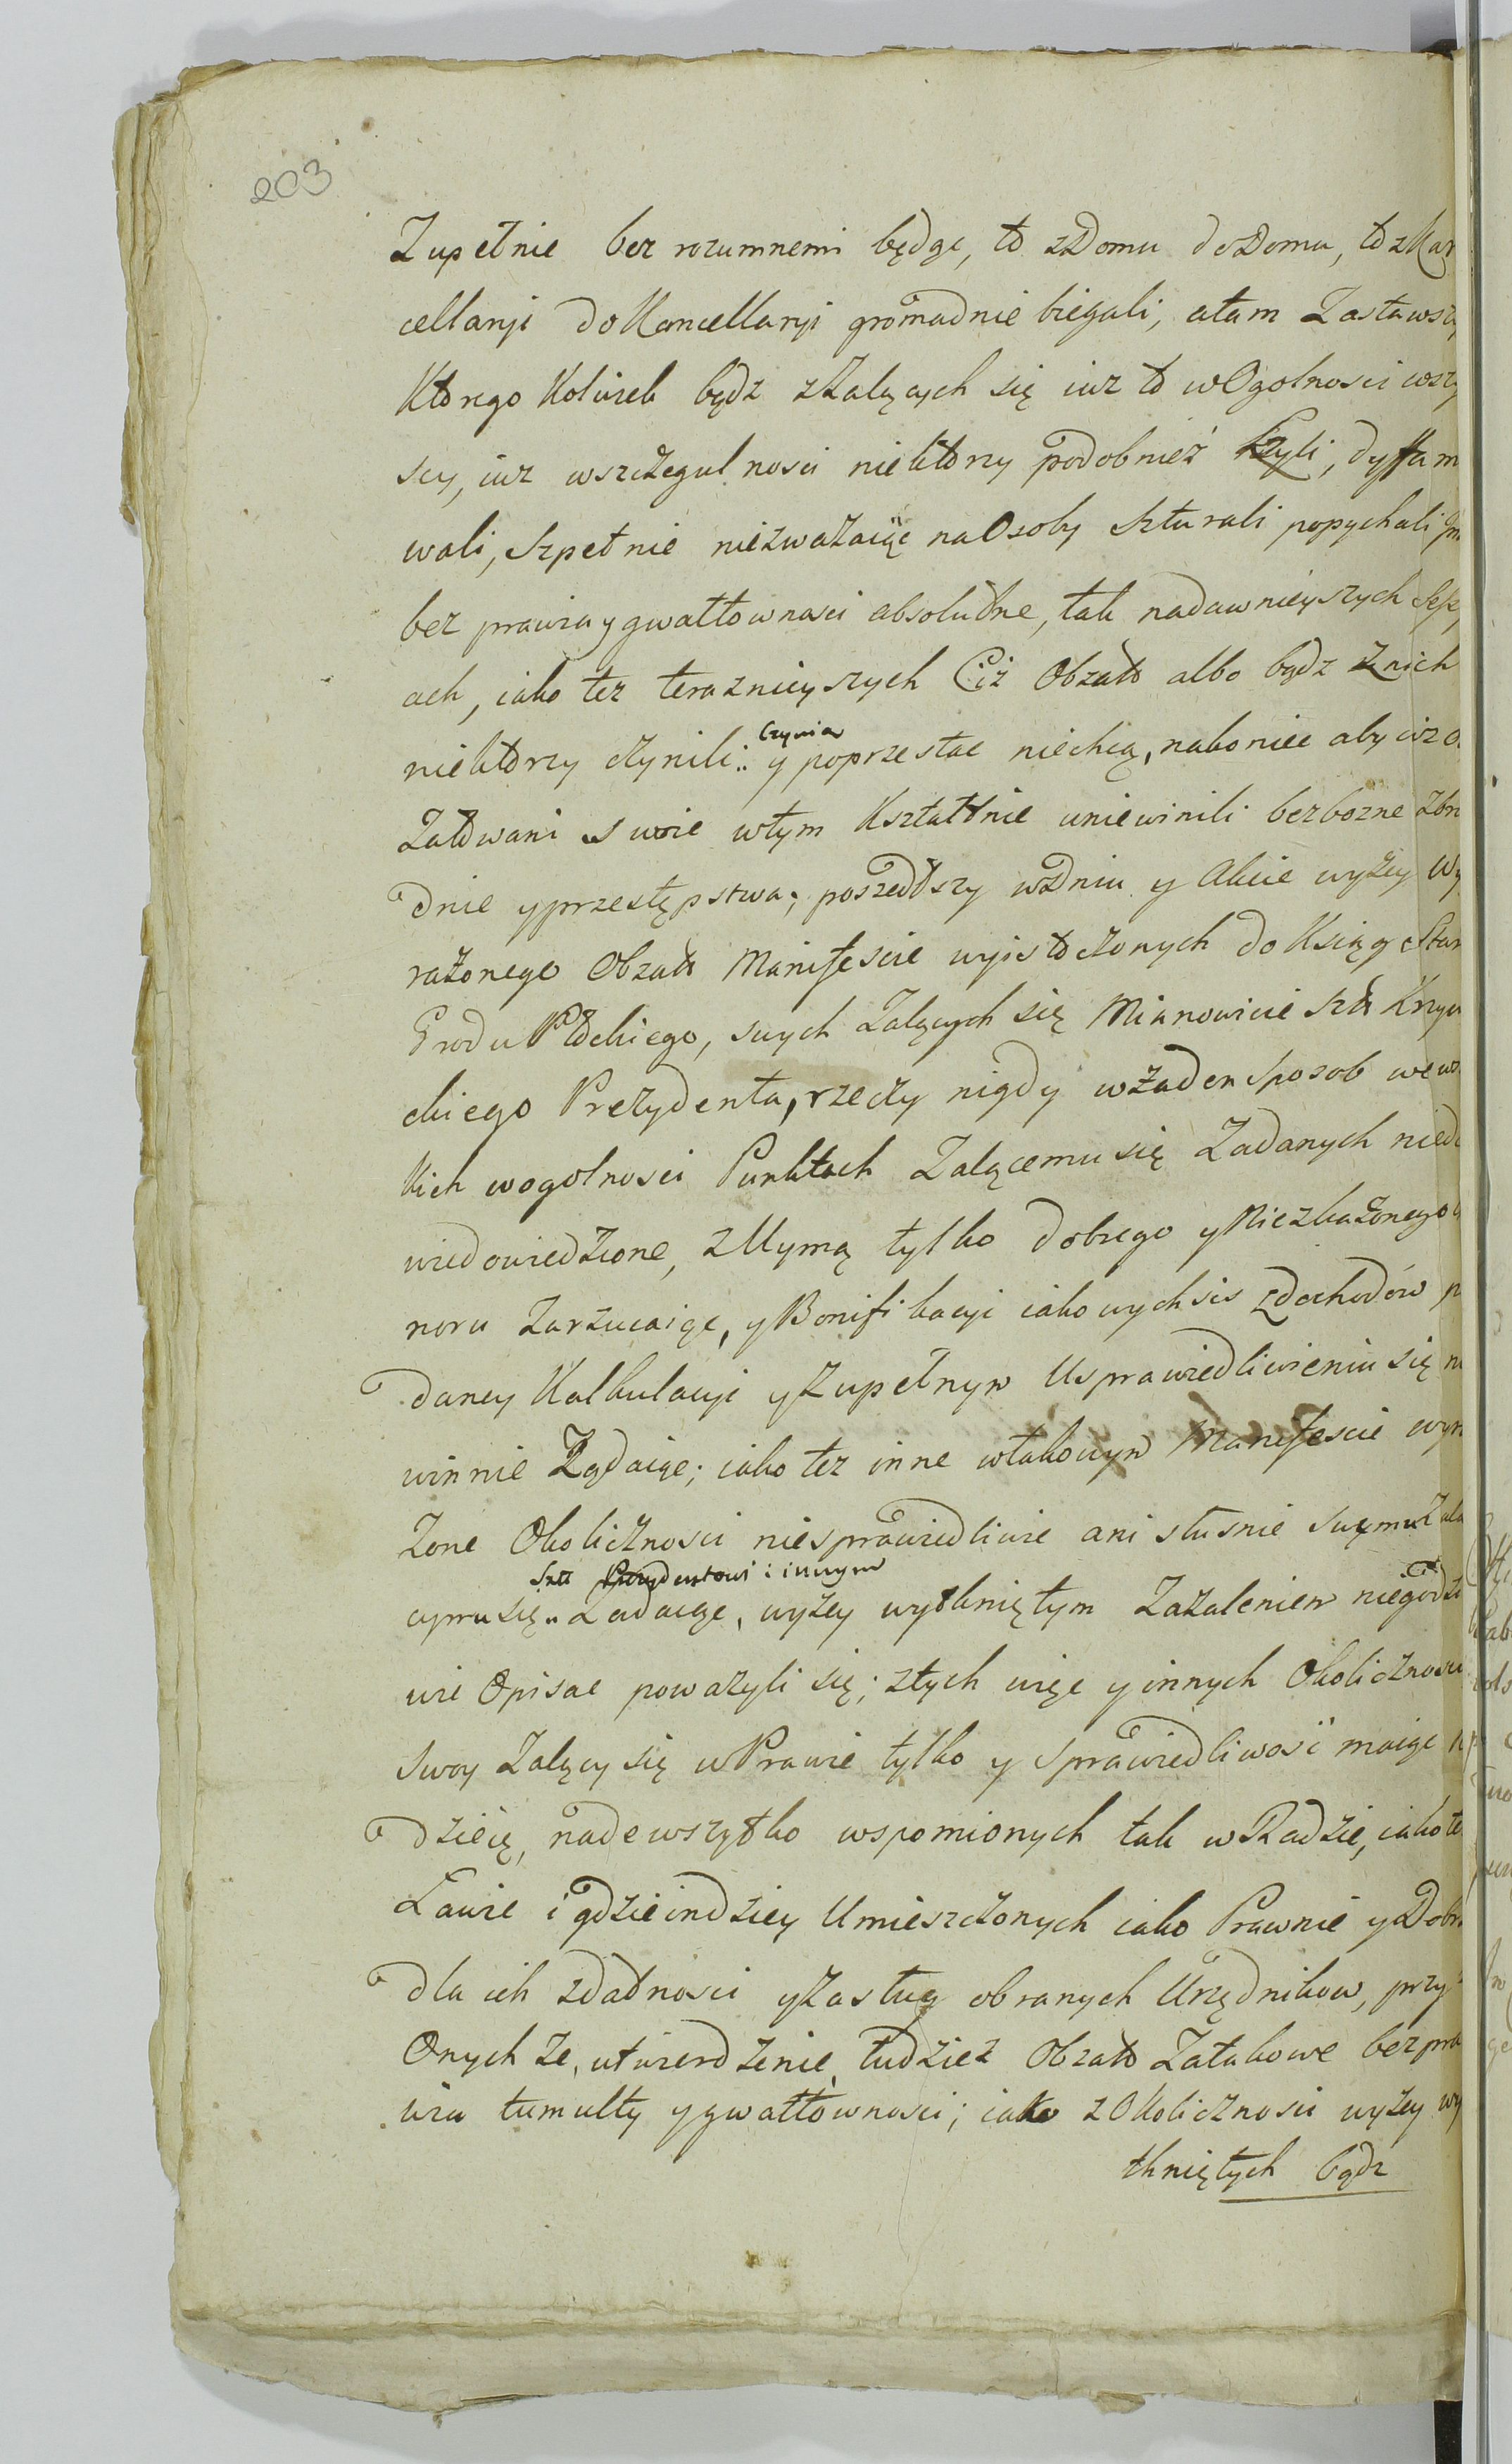 203
Zupełnie bez rozumnemi będąc, to z Domu do Domu, to z Kan
cellaryi do Kancellaryi gromadnie biegali, a tam Zastawszy
Ktorego Kolwiek bądz z Zalących się iuz to w Ogolnosci wszy
scy, iuz w szczegulnosci niektorzy podobnież Lzyli, dyffam
wali, Szpetnie nie zwazaiąc na Osoby Szturali popychali
bez prawia y gwałtownosci absolutne, tak na dawnieyszych
ach, iako tez teraznieyszych Ciż Obzało albo bądz z nich
czynia
niektorzy czynili: y poprzestac niechcą, nakoniec aby ciz o
Załowani swoie w tym Kształtnie uniewinili bezbozne zbro
dnie y przestępstwa; poszedłszy w Dniu y Akcie wyżey wy
rażonego Obzało Manifescie wyistoczonych do Ksiąg
Grodu Płockiego, swych Zalących się Mianowicie Szlo
ckiego Prezydenta, rzeczy nigdy w żaden sposob we wsz
kich w ogolnosci Punktach Zalącemu się Zadanych niedo
wiedowiedzione, z Uymą tylko dobrego y Niezkażonego
noru zarzucaiąc, y Bonifikacyi iakowychsis z dochodów p
daney Kalkulacyi y Zupełnym Usprawiedliwieniu się n
winnie Ządaiąc; iako tez inne w takowym Manifescie wyra
żone Okolicznosci niesprawiedliwie ani słusnie swemu Zala
Szło Prezydentowi i innym
cymu się Zadaiąc, wyżey wytkniętym Zażaleniem niegodzi
wie Opisac powazyli się; z tych więc y innych Okolicznosci
swoy Zalący się w Prawie tylko y sprawiedliwość maiąc n
dzieię, nadewszytko wspomionych tak w Radzie, iako te
Ławie i gdzieindziey Umieszczonych iako Prawnie y Dobro
dla ich zdatnosci y Zasług obranych Urzędnikow, przy
Onych że, utwierdzenie, tudzież Obzało Zatakowe bezpra
wia tumulty y gwałtownosci; iako z Okolicznosci wyżey wy
tkniętych bądz